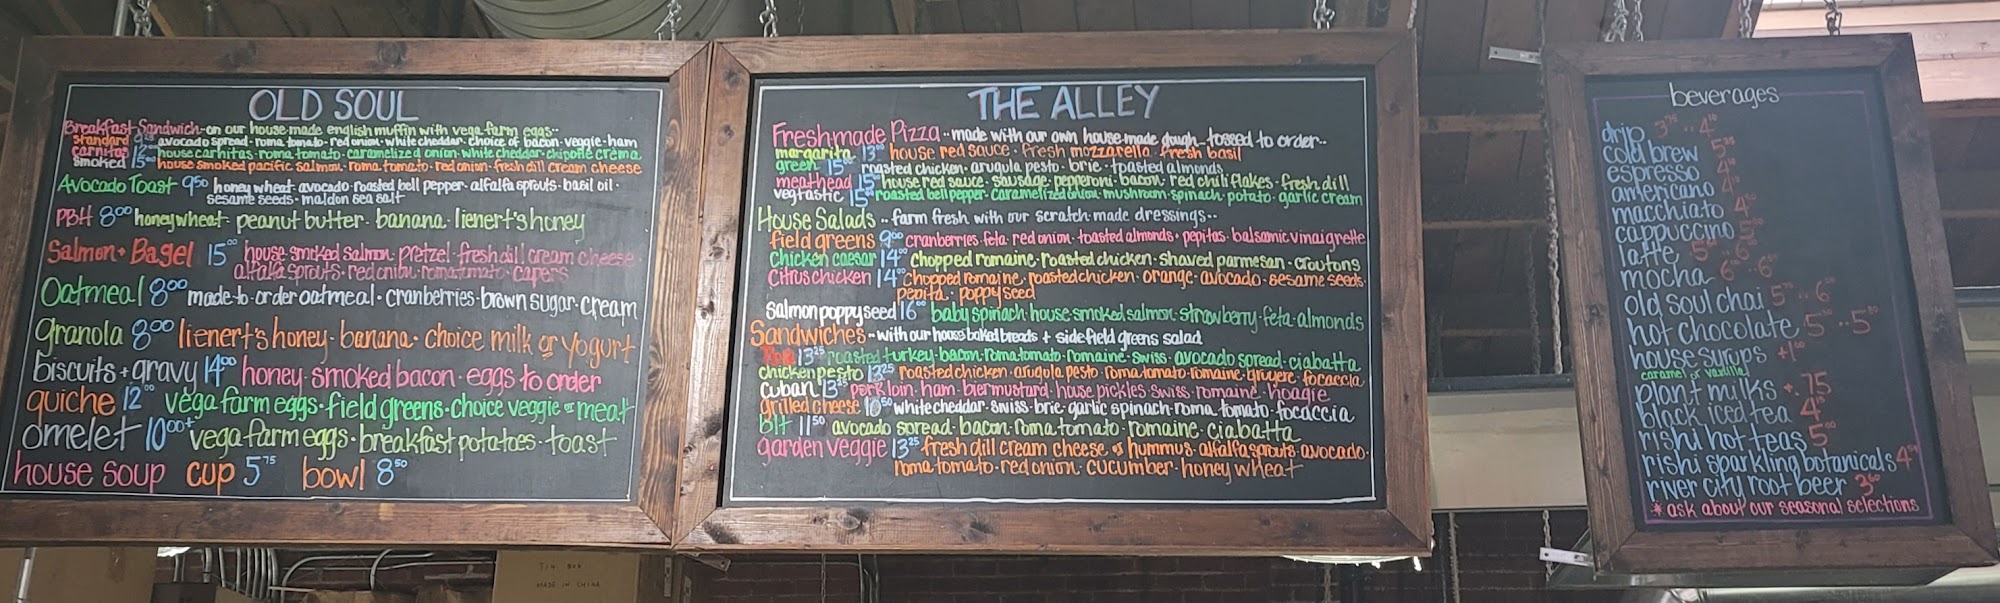 OLD SOUL
Breakfast Sandwich - on our house made english muffin with vega farm eggs..
standard 9²⁵ avocado spread · roma tomato · red onion · white cheddar · choice of bacon · veggie · ham
carnitas house carnitas · roma tomato · caramelized onion · white cheddar · chipotle crema
smoked 15⁰⁰ house smoked pacific salmon · roma tomato · red onion · fresh dill cream cheese
Avocado Toast 9⁵⁰ honey wheat · avocado · roasted bell pepper · alfalfa sprouts · basil oil ·
sesame seeds · maldon sea salt
PBH 8⁰⁰ honey wheat · peanut butter · banana · lienert's honey
Salmon + Bagel 15⁰⁰ house smoked salmon · pretzel · fresh dill cream cheese ·
alfalfa sprouts · red onion · roma tomato · capers
Oatmeal 8⁰⁰ made to order oatmeal · cranberries · brown sugar · cream
Granola 8⁰⁰ lienert's honey · banana · choice milk or yogurt
biscuits + gravy 14⁰⁰ honey smoked bacon · eggs to order
quiche 12⁰⁰ vega farm eggs · field greens · choice veggie or meat
omelet 10⁰⁰⁺ vega farm eggs · breakfast potatoes · toast
house soup cup 5⁷⁵ bowl 8⁵⁰
THE ALLEY
Fresh made Pizza .. made with our own house made dough.. tossed to order..
margarita 13⁰⁰ house red sauce · fresh mozzarella · fresh basil
green 15⁰⁰ roasted chicken · arugula pesto · brie · toasted almonds
meathead 15⁰⁰ house red sauce · sausage · pepperoni · bacon · red chili flakes · fresh dill
vegtastic 15⁰⁰ roasted bell pepper · caramelized onion · mushroom · spinach · potato · garlic cream
House Salads .. farm fresh with our scratch made dressings..
field greens 9⁰⁰ cranberries · feta · red onion · toasted almonds + pepitas · balsamic vinaigrette
Chicken caesar 14⁰⁰ chopped romaine · roasted chicken · shaved parmesan · croutons
Citrus chicken 14⁰⁰ chopped romaine · roasted chicken · orange · avocado · sesame seeds ·
pepita · poppy seed
Salmon poppy seed 16⁰⁰ baby spinach · house smoked salmon · strawberry · feta · almonds
Sandwiches - with our house baked breads + side field greens salad
13²⁵ roasted turkey · bacon · roma tomato · romaine · swiss · avocado spread · ciabatta
chicken pesto 13²⁵ roasted chicken · arugula pesto · roma tomato · romaine · gruyere · focaccia
cuban 13²⁵ pork loin · ham · bier mustard · house pickles · swiss · romaine · hoagie
grilled cheese 10⁵⁰ white cheddar · swiss · brie · garlic spinach · roma tomato · focaccia
blt 11⁵⁰ avocado spread · bacon · roma tomato · romaine · ciabatta
garden veggie 13²⁵ fresh dill cream cheese or hummus · alfalfa sprouts · avocado ·
roma tomato · red onion · cucumber · honey wheat
beverages
drip
cold brew
espresso
americano
macchiato
cappuccino
latte
mocha
old soul chai
hot chocolate
house syrups +1
caramel or vanilla
plant milks +.75
black iced tea
rishi hot teas
rishi sparkling botanicals
river city root beer
* ask about our seasonal selections
TIN BOX
MADE IN CHINA